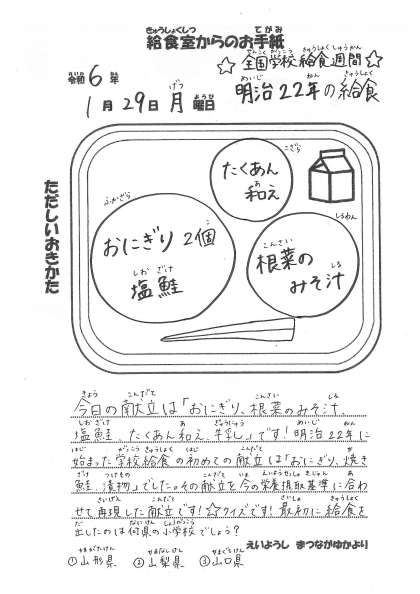 給食室からのお手紙
令和6年
1月29日月曜日
☆全国学校給食週間☆
明治22年の給食
ただしいおきかた
たくあん
和え
おにぎり 2個
塩鮭
根菜の
みそ汁
今日の献立は「おにぎり、根菜のみそ汁、
塩鮭、たくあん和え、牛乳」です!明治22年に
始まった学校給食の初めての献立は「おにぎり、焼き
鮭、漬物」でした。その献立を今の栄養摂取基準に合わ
せて再現した献立です!☆クイズです!最初に給食を
出したのは何県の小学校でしょう?
えいようし まつながゆかより
①山形県 ②山梨県 ③山口県